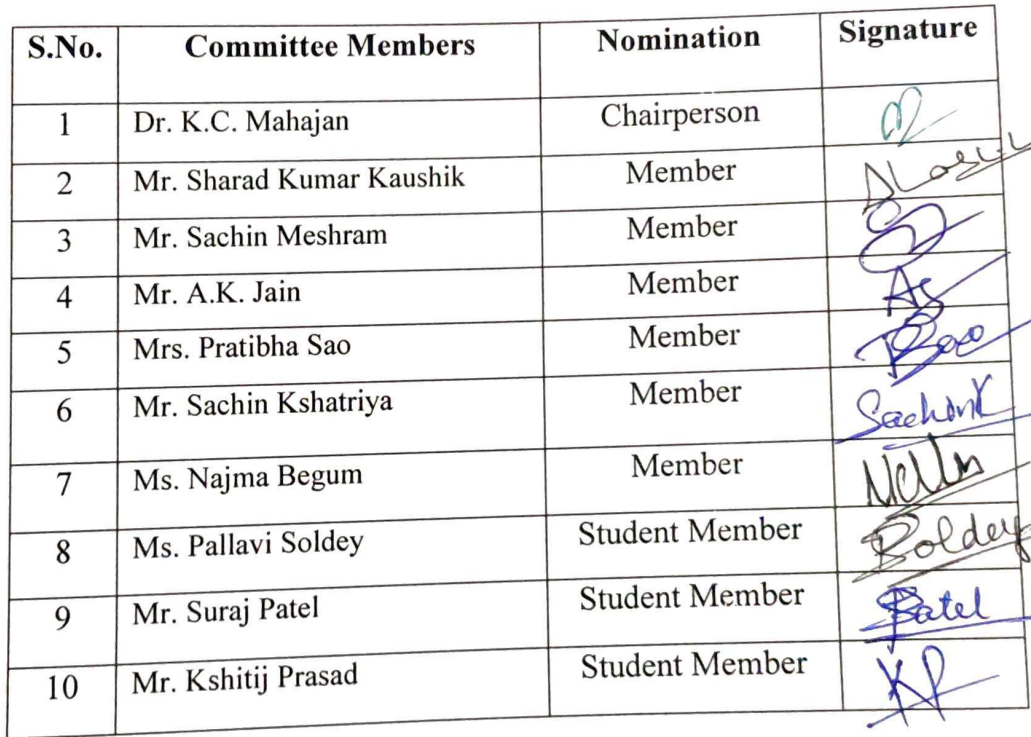 S.No. Committee Members Nomination Signature
1 Dr. K.C. Mahajan Chairperson
2 Mr. Sharad Kumar Kaushik Member
3 Mr. Sachin Meshram Member
4 Mr. A.K. Jain Member
5 Mrs. Pratibha Sao Member
6 Mr. Sachin Kshatriya Member SachinK
7 Ms. Najma Begum Member
8 Ms. Pallavi Soldey Student Member
9 Mr. Suraj Patel Student Member
10 Mr. Kshitij Prasad Student Member KP